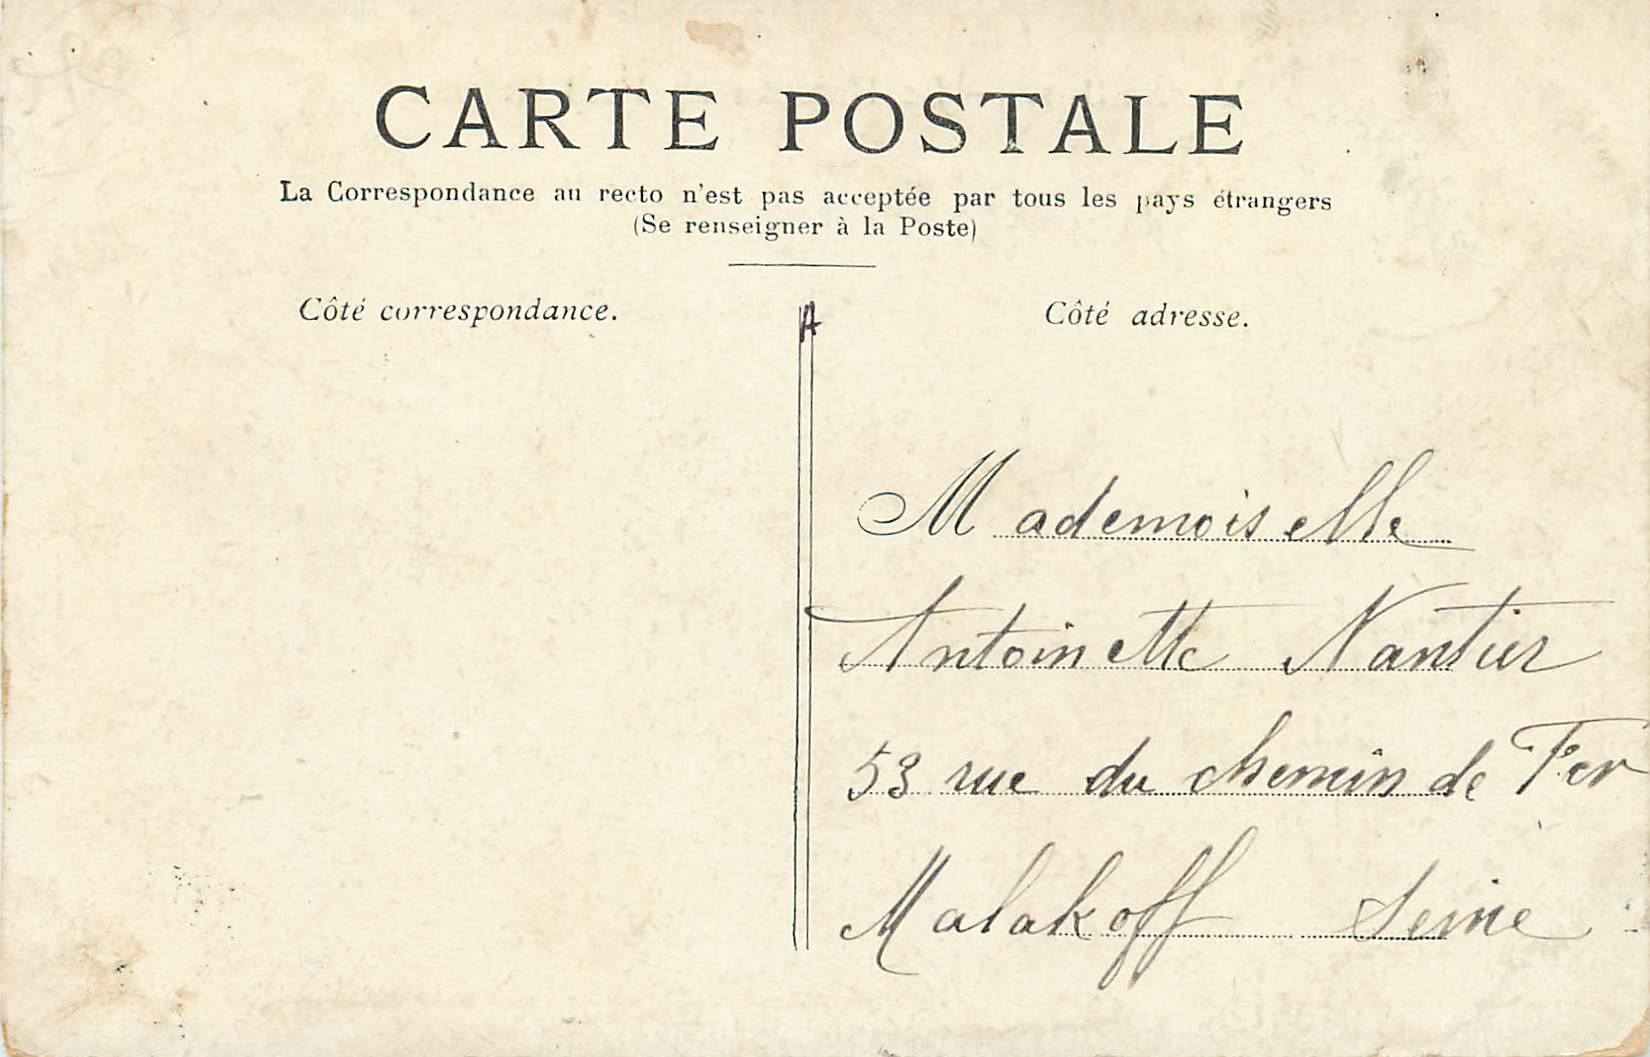 CARTE POSTALE
La Correspondance au recto n'est pas acceptée par tous les pays étrangers
(Se renseigner à la Poste)
Côté correspondance.
A
Côté adresse.
Mademoiselle
Antoinette Nantier
53 rue du chemin de Fer
Malakoff Seine